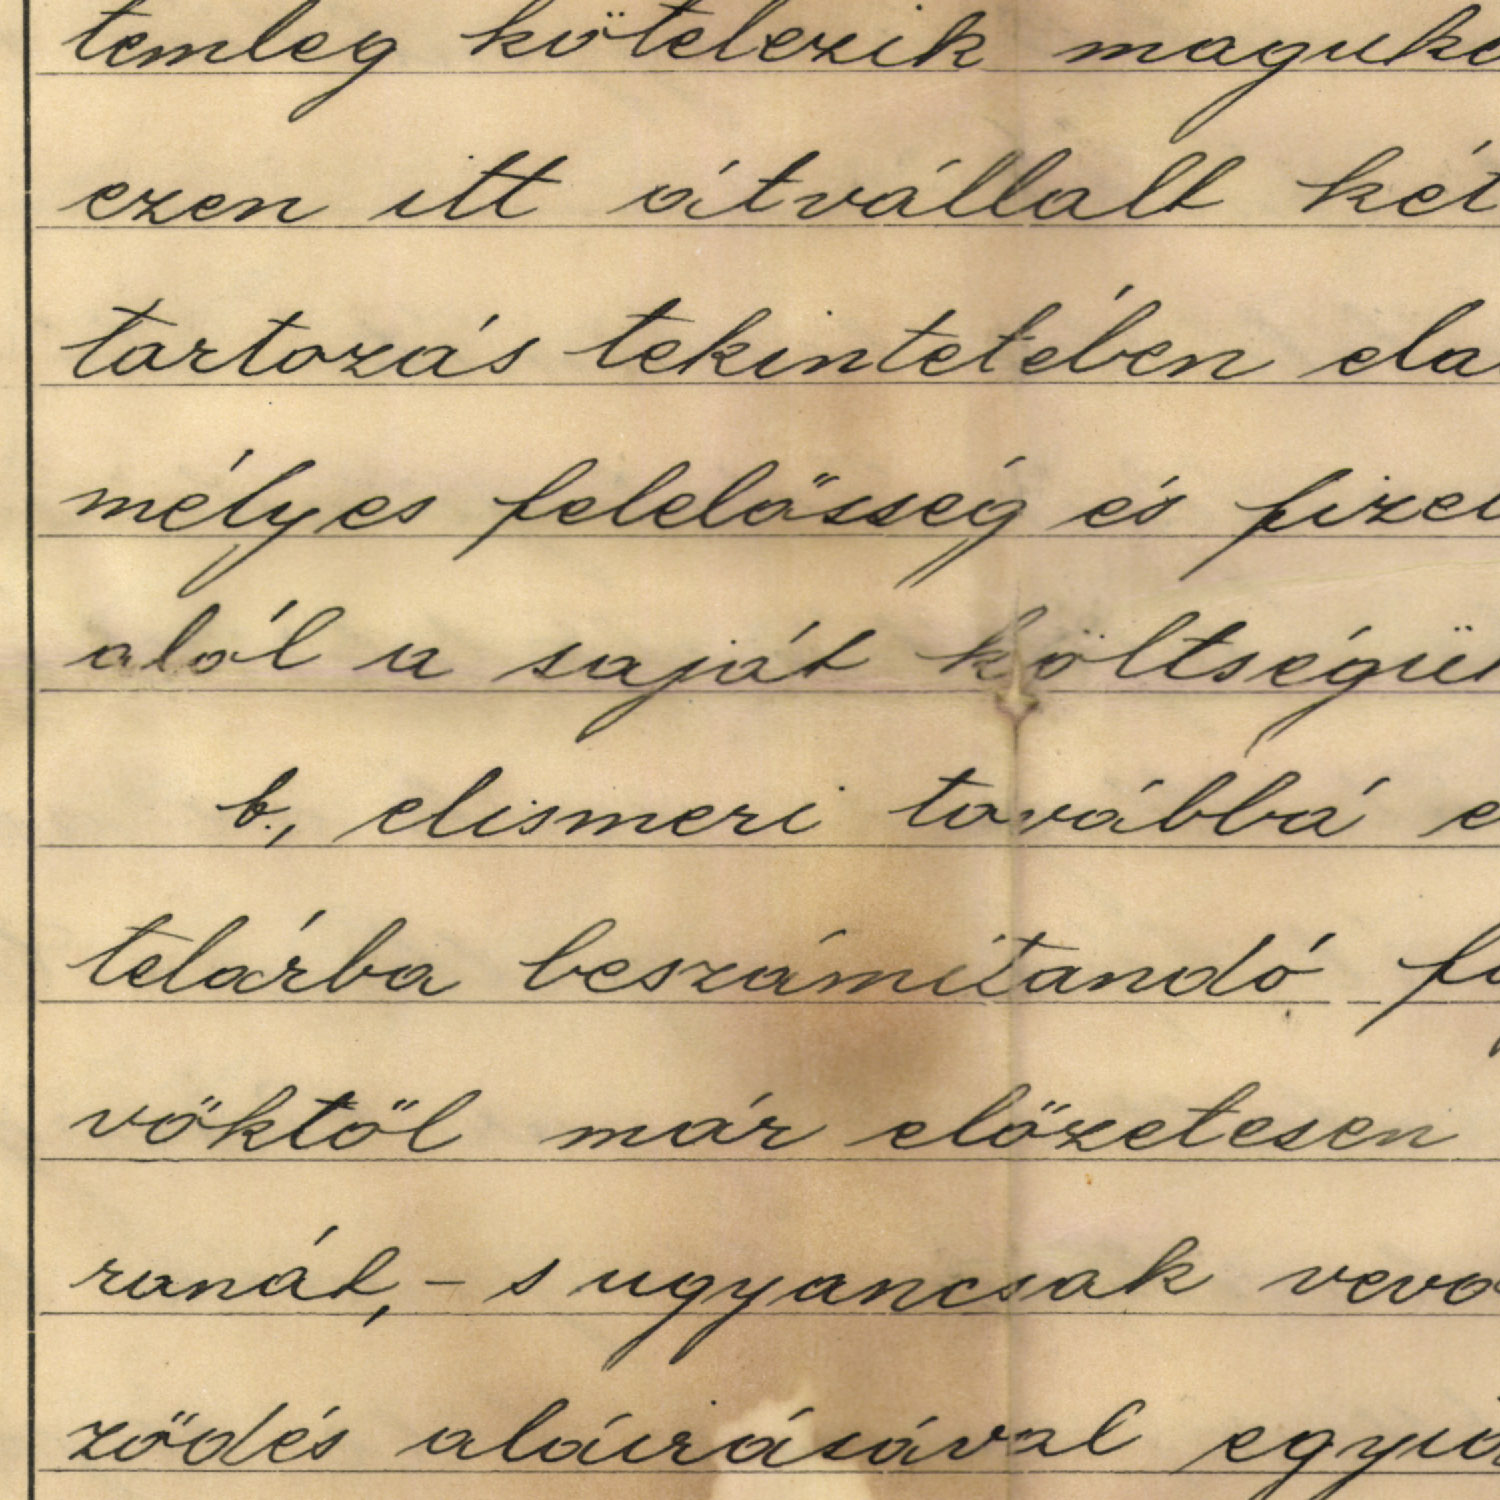 temleg kötelezik maguka
ezen itt átvállalt két
tartozás tekintetében ela
mélyes felelősség és fizet
alól a saját költségük
b., elismeri továbbá e
telárba beszámítandó fo
vőktől már előzetesen
ranát,- s ugyancsak vevő
ződés aláirásával együ